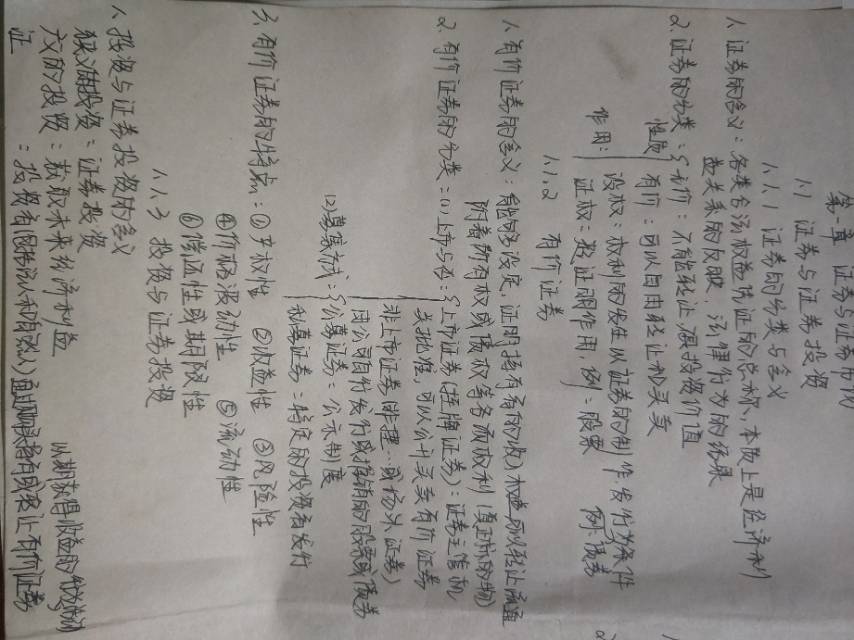 第一章 证券与证券市场
1.1 证券与证券投资
1.1.1 证券的分类与含义
1.证券的含义：各类合法权益凭证的总称、本质上是经济利
益关系的反映、法律行为的纪录
2.证券的分类：{无价：不能转让,没投资价值
性质 有价：可以自由转让和买卖
作用： 设权：权利的发生以证券的制作发行为条件 例：债券
证权：类证明作用，例：股票
1.1.2 有价证券
1.有价证券的含义：能够设定,证明持有者的 可以转让流通
附着所有权或债权等各项权利（真正标的物）
2.有价证券的分类：(1)上市与否：{上市证券(挂牌证券)：证券主管机
关批准，可以公开买卖有价证券
非上市证券(非挂…或场外证券)
由公司自行发行或推销的股票或债券
(2)募集方式：{公募证券：公示制度
私募证券：特定的投资者发行
3.有价证券的特点：①产权性 ②收益性 ③风险性
④价格波动性 ⑤流动性
⑥偿还性或期限性
1.1.3 投资与证券投资
1.投资与证券投资的含义
狭义投资：证券投资
广义的投资：获取未来经济利益 以期获得收益的
证 ：投资者(包括法人和自然人)通过 有或转让有价证券